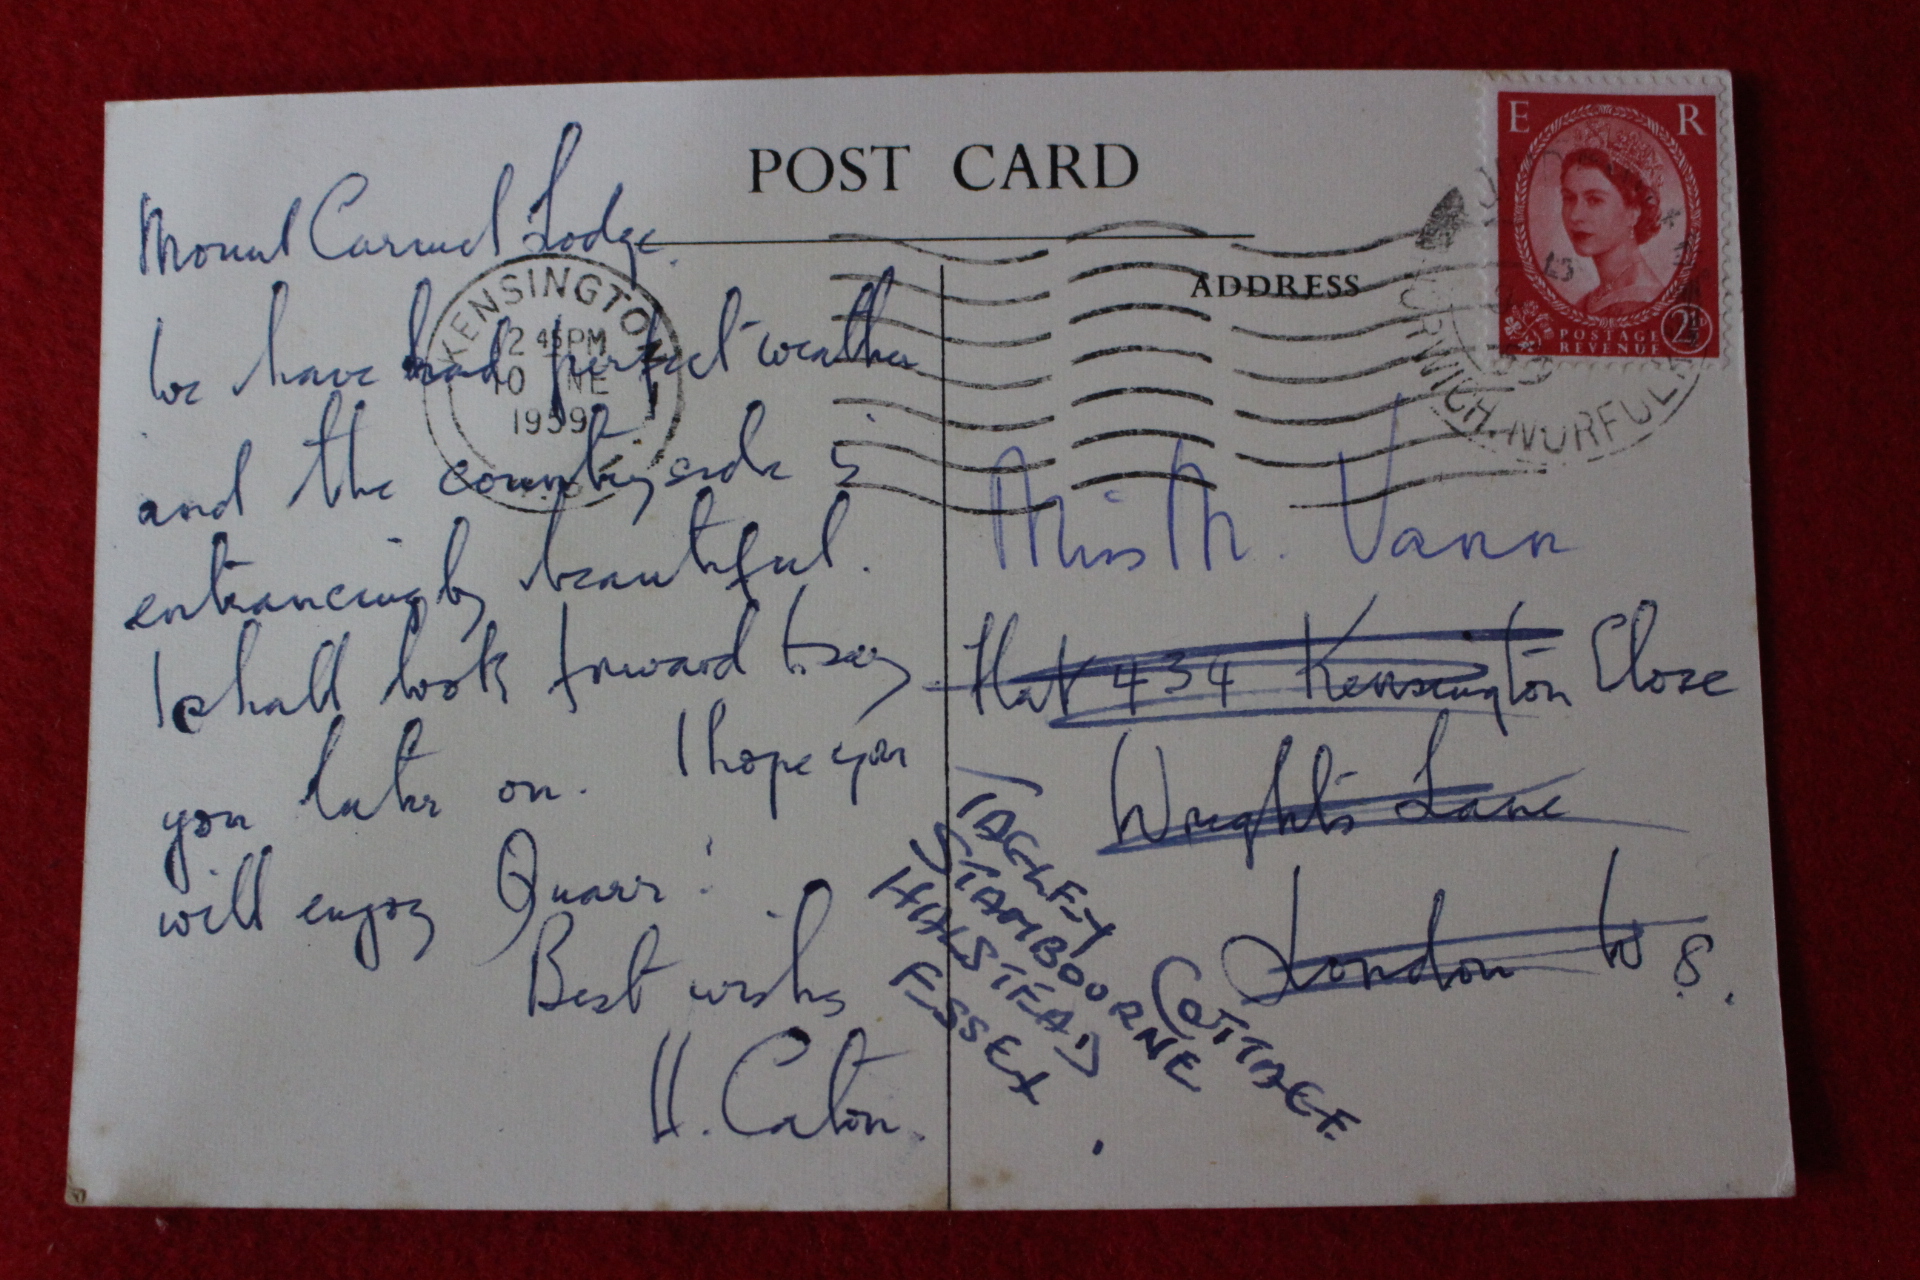 POST CARD
ADDRESS
E R
POSTAGE
REVENUE
2½D
KENSINGTON
2 45 PM
10 NE
1959
NORWICH. NORFOLK
Mount Carmel Lodge.
We have had perfect weather
and the countryside is
entrancingly beautiful.
I shall look forward to seeing
you later on. I hope you
will enjoy Quarr!
Best wishes
H. Caton.
Miss M. Vann
Flat 434 Kensington Close
Wright's Lane
London W 8.
TAGLEY COTTAGE.
STAMBOURNE
HALSTEAD
ESSEX